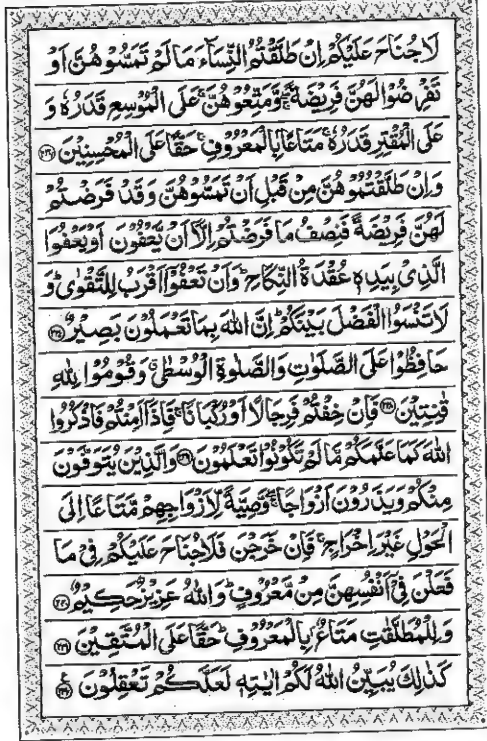 لَا جُنَاحَ عَلَيْكُمْ اِنْ طَلَّقْتُمُ النِّسَآءَ مَا لَمْ تَمَسُّوْهُنَّ اَوْ
تَفْرِضُوْا لَهُنَّ فَرِيْضَةً ۖۚ وَّمَتِّعُوْهُنَّ ۚ عَلَى الْمُوْسِعِ قَدَرُهٗ وَ
عَلَى الْمُقْتِرِ قَدَرُهٗ ۚ مَتَاعًۢا بِالْمَعْرُوْفِ ۚ حَقًّا عَلَى الْمُحْسِنِيْنَ ﴿۲۳۶﴾
وَاِنْ طَلَّقْتُمُوْهُنَّ مِنْ قَبْلِ اَنْ تَمَسُّوْهُنَّ وَقَدْ فَرَضْتُمْ
لَهُنَّ فَرِيْضَةً فَنِصْفُ مَا فَرَضْتُمْ اِلَّاۤ اَنْ يَّعْفُوْنَ اَوْ يَعْفُوَا
الَّذِيْ بِيَدِهٖ عُقْدَةُ النِّكَاحِ ؕ وَاَنْ تَعْفُوْۤا اَقْرَبُ لِلتَّقْوٰى ؕ وَ
لَا تَنْسَوُا الْفَضْلَ بَيْنَكُمْ ؕ اِنَّ اللّٰهَ بِمَا تَعْمَلُوْنَ بَصِيْرٌ ﴿۲۳۷﴾
حَافِظُوْا عَلَى الصَّلَوٰتِ وَالصَّلٰوةِ الْوُسْطٰى ۗ وَقُوْمُوْا لِلّٰهِ
قٰنِتِيْنَ ﴿۲۳۸﴾ فَاِنْ خِفْتُمْ فَرِجَالًا اَوْ رُكْبَانًا ۚ فَاِذَاۤ اَمِنْتُمْ فَاذْكُرُوا
اللّٰهَ كَمَا عَلَّمَكُمْ مَّا لَمْ تَكُوْنُوْا تَعْلَمُوْنَ ﴿۲۳۹﴾ وَالَّذِيْنَ يُتَوَفَّوْنَ
مِنْكُمْ وَيَذَرُوْنَ اَزْوَاجًا ۖۚ وَّصِيَّةً لِّاَزْوَاجِهِمْ مَّتَاعًا اِلَى
الْحَوْلِ غَيْرَ اِخْرَاجٍ ۚ فَاِنْ خَرَجْنَ فَلَا جُنَاحَ عَلَيْكُمْ فِيْ مَا
فَعَلْنَ فِيْۤ اَنْفُسِهِنَّ مِنْ مَّعْرُوْفٍ ؕ وَاللّٰهُ عَزِيْزٌ حَكِيْمٌ ﴿۲۴۰﴾
وَلِلْمُطَلَّقٰتِ مَتَاعٌۢ بِالْمَعْرُوْفِ ؕ حَقًّا عَلَى الْمُتَّقِيْنَ ﴿۲۴۱﴾
كَذٰلِكَ يُبَيِّنُ اللّٰهُ لَكُمْ اٰيٰتِهٖ لَعَلَّكُمْ تَعْقِلُوْنَ ﴿۲۴۲﴾ ع